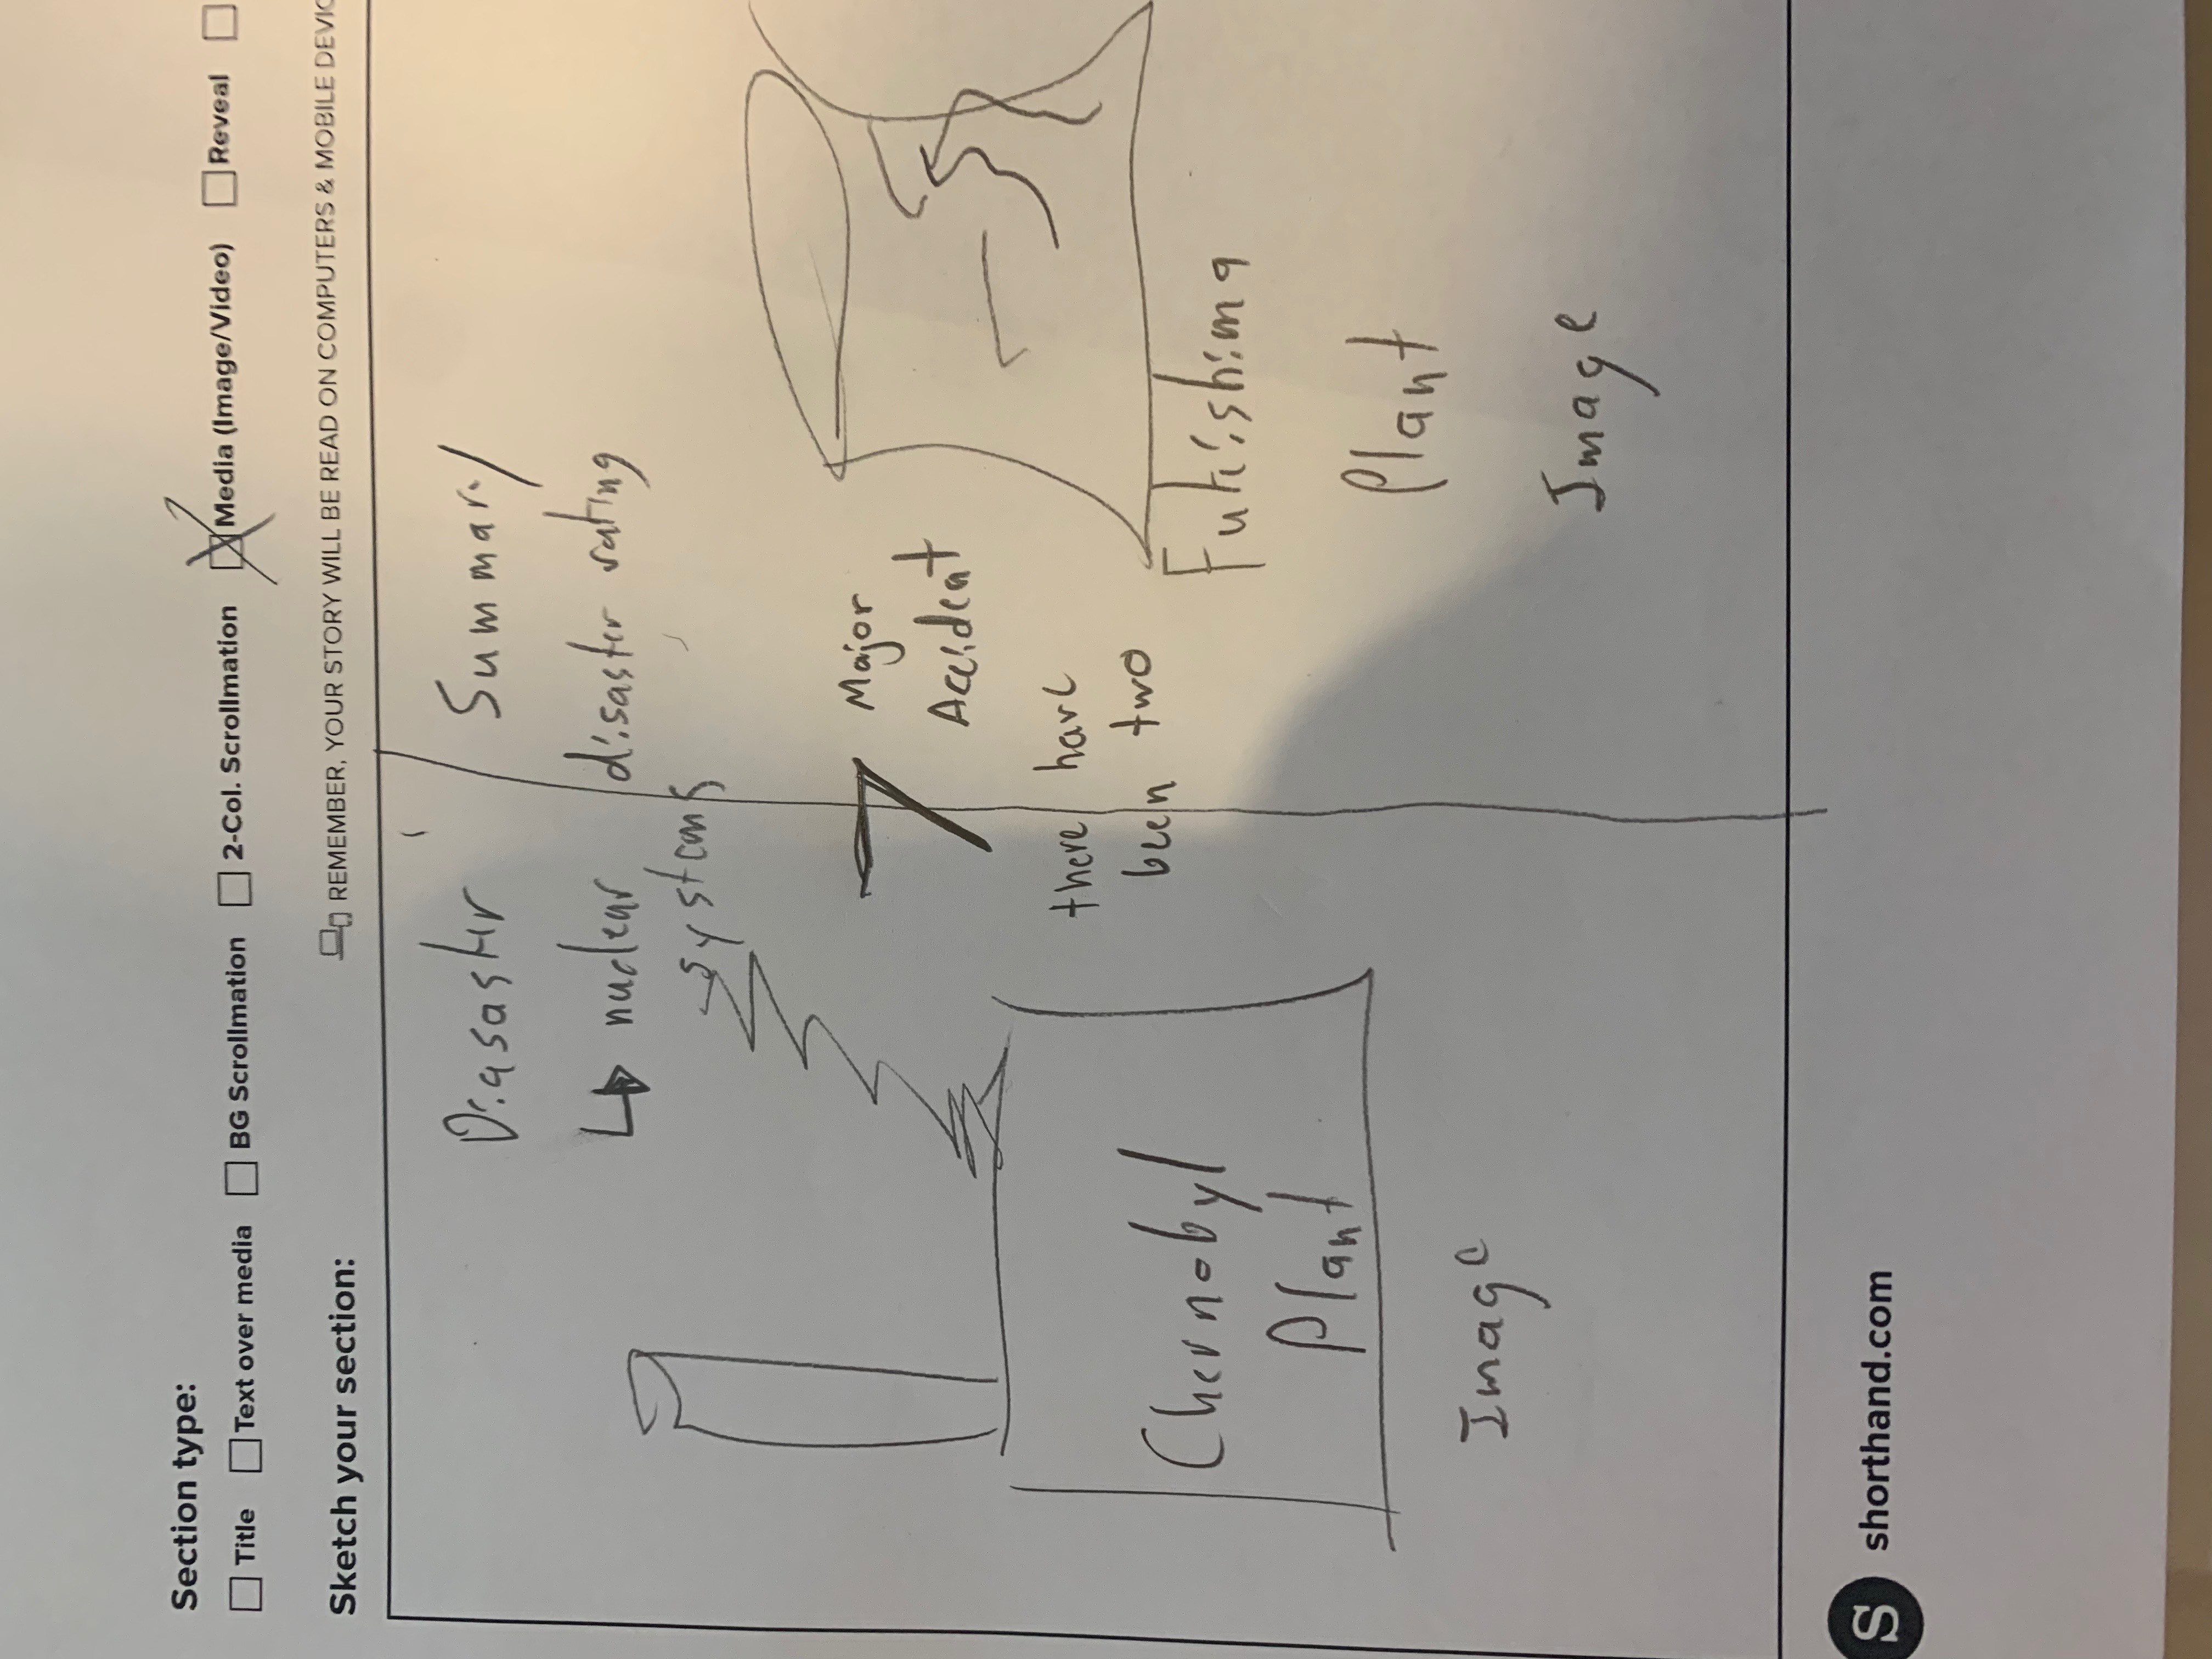 Section type:
Title Text over media BG Scrollmation 2-Col. Scrollmation Media (Image/Video) Reveal
Sketch your section:
REMEMBER, YOUR STORY WILL BE READ ON COMPUTERS & MOBILE DEVIC
Diasaster Summary
nuclear disaster rating
systems
7 Major
Accident
there have
been two
Chernobyl
Plant
Image
Fukishima
Plant
Image
S shorthand.com